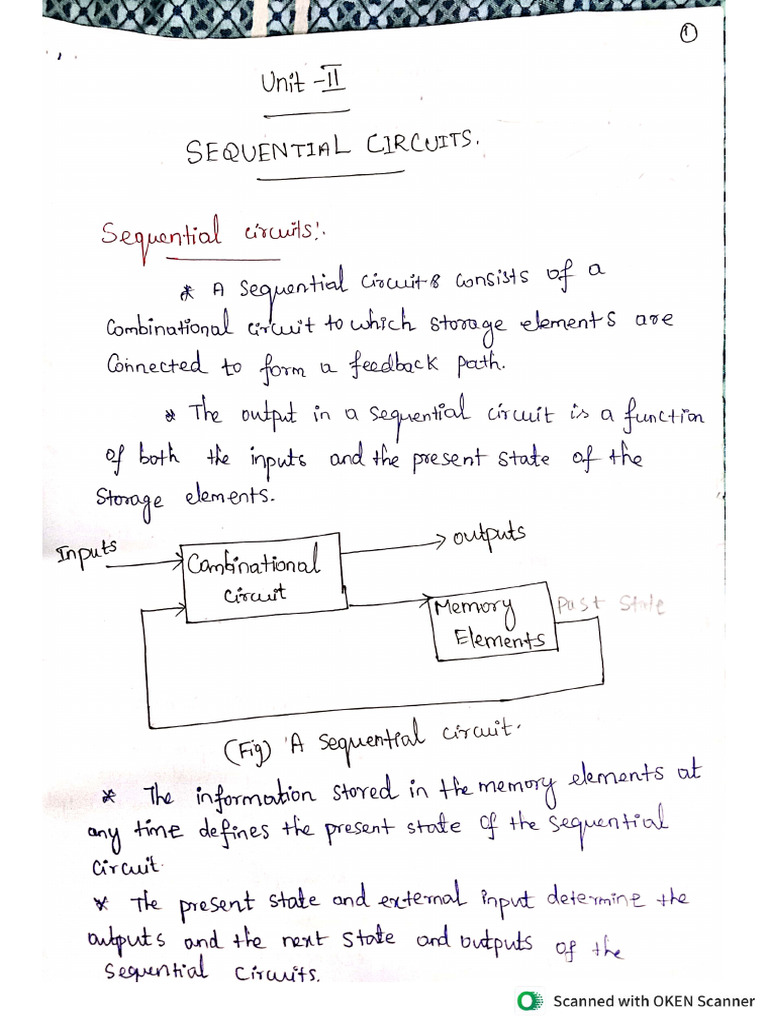 1
Unit - II
SEQUENTIAL CIRCUITS.
Sequential circuits:.
* A Sequential circuit & consists of a
Combinational circuit to which storage elements are
Connected to form a feedback path.
* The output in a sequential circuit is a function
of both the inputs and the present state of the
Storage elements.
Inputs
Combinational
circuit
outputs
Memory
Elements
Past State
(Fig) A sequential circuit.
* The information stored in the memory elements at
any time defines the present state of the sequential
circuit.
* The present state and external input determine the
outputs and the next state and outputs of the
sequential circuits.
Scanned with OKEN Scanner